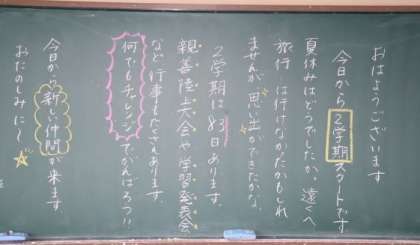 おはようございます
今日から2学期スタートです
夏休みはどうでしたか、遠くへ
旅行は行けなかたかもしれ
ませんが、思い出ができたかな。
2学期は83日あります。
親善陸上大会や学習発表会
など行事もたくさんあります。
何でもチャレンジでがんばろう!!
今日から新しい仲間が来ます
おたのしみに〜